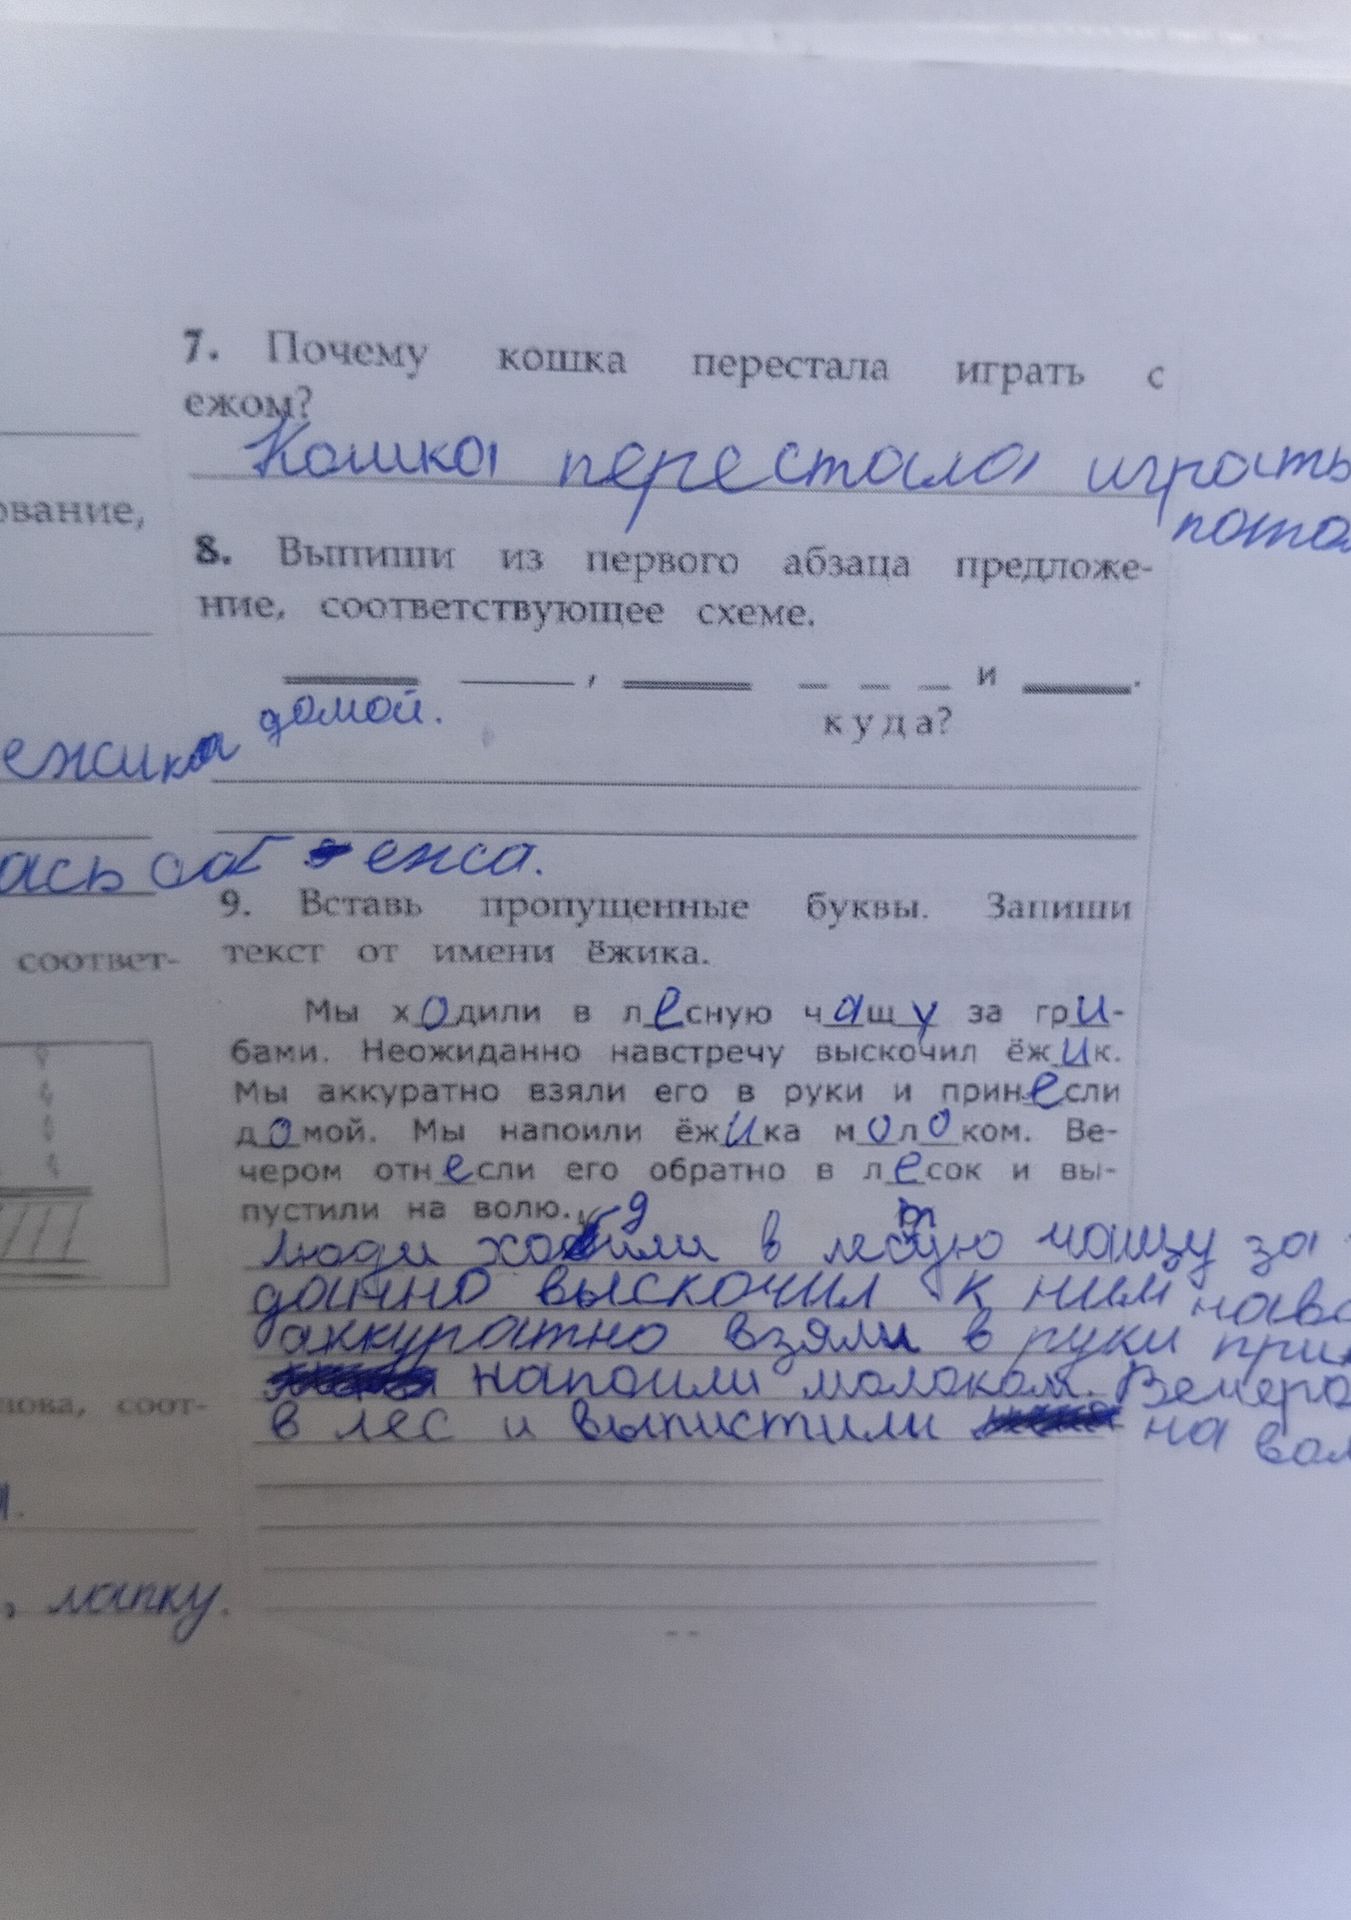 7. Почему кошка перестала играть с
ежом?
Кошка перестала играть
пото
8. Выпиши из первого абзаца предложе-
ние, соответствующее схеме.
, и .
куда?
домой.
ежика
ась об ежа.
ование,
9. Вставь пропущенные буквы. Запиши
текст от имени ёжика.
соответ-
Мы ходили в лесную чащу за гри-
бами. Неожиданно навстречу выскочил ёжик.
Мы аккуратно взяли его в руки и принесли
домой. Мы напоили ёжика молоком. Ве-
чером отнесли его обратно в лесок и вы-
пустили на волю.
Люди ходили в лесную чащу за
данно выскочил к ним навс
аккуратно взяли в руки при
напоили молоком. Вечеро
в лес и выпистили на вол
лова, соот-
, лапку.